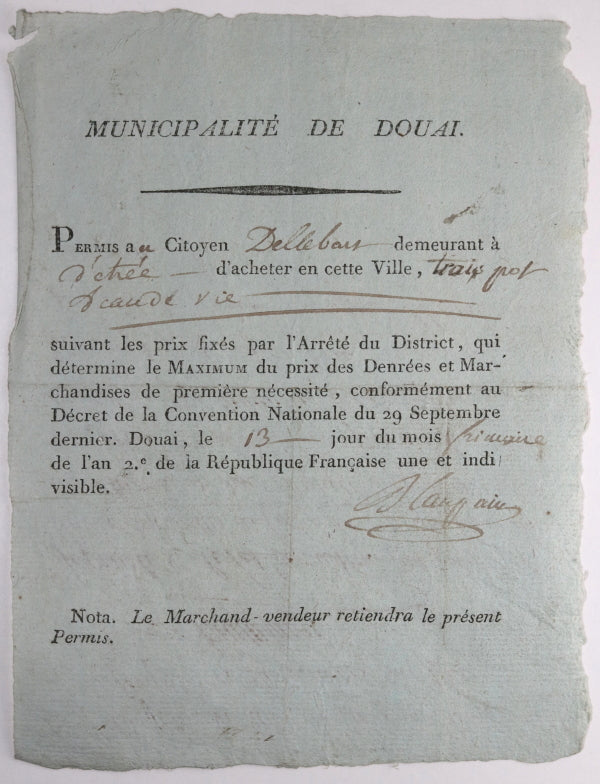 MUNICIPALITÉ DE DOUAI.
PERMIS au Citoyen Dellebart demeurant à
d'etrée d'acheter en cette Ville, trais pot
d'eaude vie
suivant les prix fixés par l'Arrêté du District, qui
détermine le MAXIMUM du prix des Denrées et Mar-
chandises de première nécessité, conformément au
Décret de la Convention Nationale du 29 Septembre
dernier. Douai, le 13 jour du mois frimaire
de l'an 2.e de la République Française une et indi
visible.
Nota. Le Marchand-vendeur retiendra le présent
Permis.